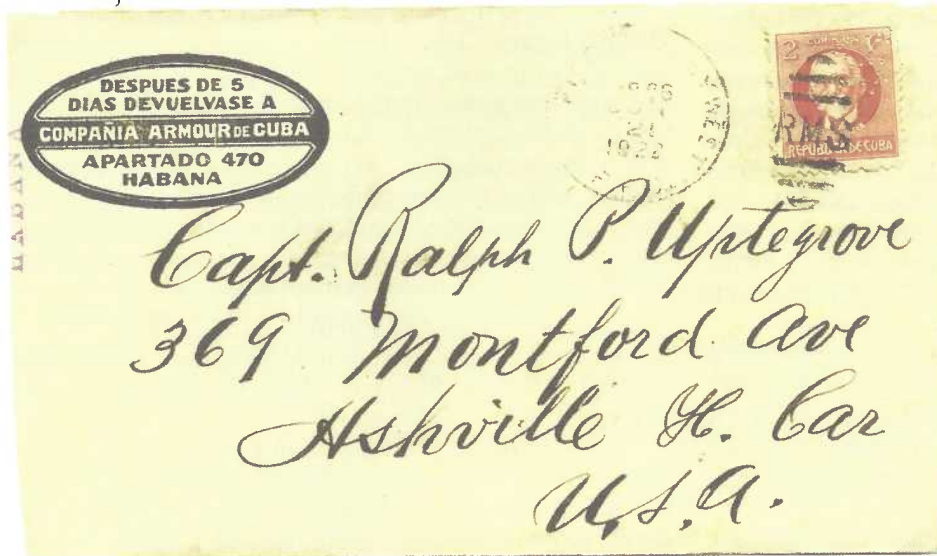 DESPUES DE 5
DIAS DEVUELVASE A
COMPAÑIA ARMOUR DE CUBA
APARTADO 470
HABANA
HABANA
2
REPUBLICA DE CUBA
RMS
Capt. Ralph P. Uptegrove
369 Montford Ave
Ashville N. Car
U.S.A.